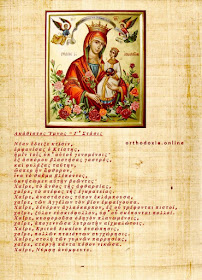 Ἀκάθιστος Ὕμνος -Γ΄ Στάσις
orthodoxia.online
Νέαν ἔδειξε κτίσιν,
ἐμφανίσας ὁ Κτίστης,
ἡμῖν τοῖς ὑπ' αὐτοῦ γενομένοις·
ἐξ ἀσπόρου βλαστήσας γαστρός,
καὶ φυλάξας ταύτην,
ὥσπερ ἦν ἄφθορον,
ἵνα τὸ θαῦμα βλέποντες,
ὑμνήσωμεν αὐτὴν βοῶντες·
Χαῖρε, τὸ ἄνθος τῆς ἀφθαρσίας,
Χαῖρε, τὸ στέφος τῆς ἐγκρατείας.
Χαῖρε, ἀναστάσεως τύπον ἐκλάμπουσα,
Χαῖρε, τῶν Ἀγγέλων τὸν βίον ἐμφαίνουσα.
Χαῖρε, δένδρον ἀγλαόκαρπον, ἐξ οὗ τρέφονται πιστοί,
Χαῖρε, ξύλον εὐσκιόφυλλον, ὑφ' οὗ σκέπονται πολλοί.
Χαῖρε, κυοφοροῦσα ὁδηγὸν πλανωμένοις,
Χαῖρε, ἀπογεννῶσα λυτρωτὴν αἰχμαλώτοις.
Χαῖρε, Κριτοῦ δικαίου δυσώπησις,
Χαῖρε, πολλῶν πταιόντων συγχώρησις.
Χαῖρε, στολὴ τῶν γυμνῶν παρρησίας,
Χαῖρε, στοργὴ πάντα πόθον νικῶσα.
Χαῖρε, Νύμφη ἀνύμφευτε.